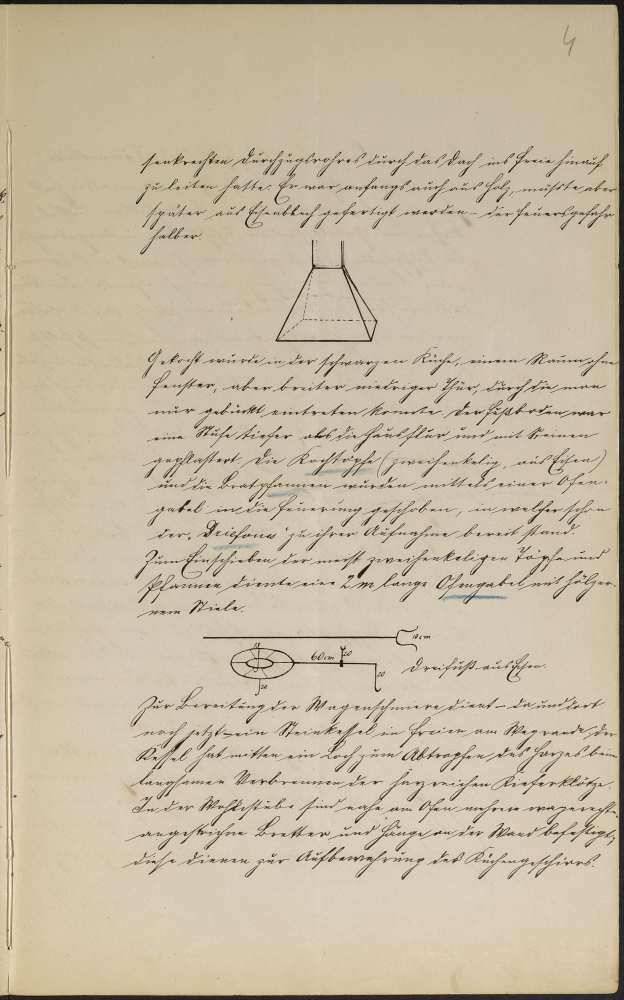 4
senkrechten Durchzugsrohres durch das Dach ins Freie hinauf
zu leiten hatte. Er war anfangs auch aus Holz, mußte aber
später aus Eisenblech gefertigt werden – der Feuersgefahr
halber.
Gekocht wurde in der schwarzen Küche, einem Raum ohne
Fenster, aber breiter niedriger Thür, durch die man
nur gebückt eintreten konnte. Der Fußboden war
eine Stufe tiefer als die Hausflur und mit Steinen
gepflastert. Die Kochtöpfe (zweihenkelig, aus Eisen)
und die Bratpfannen wurden mittels einer Ofen-
gabel in die Feuerung geschoben, in welcher schon
der zu ihrer Aufnahme bereit stand.
Zum Einschieben der meist zweihenkeligen Töpfe und
Pfannen diente eine 2 m lange Ofengabel mit hölzer-
nem Stiele.
10 cm
60 cm 20
20
20
Dreifuß aus Eisen.
Zur Bereitung der Wagenschmiere dient – da und dort
noch jetzt – ein Steinkessel im Freien am Wegrande, der
Kessel hat mitten ein Loch zum Abtropfen des Harzes beim
langsamen Verbrennen der harzreichen Kieferklötze.
In der Wohnstube sind nahe am Ofen mehrere wagerecht
Bretter und Hänge an der Wand befestigt;
diese dienen zur Aufbewahrung des Küchengeschirrs.